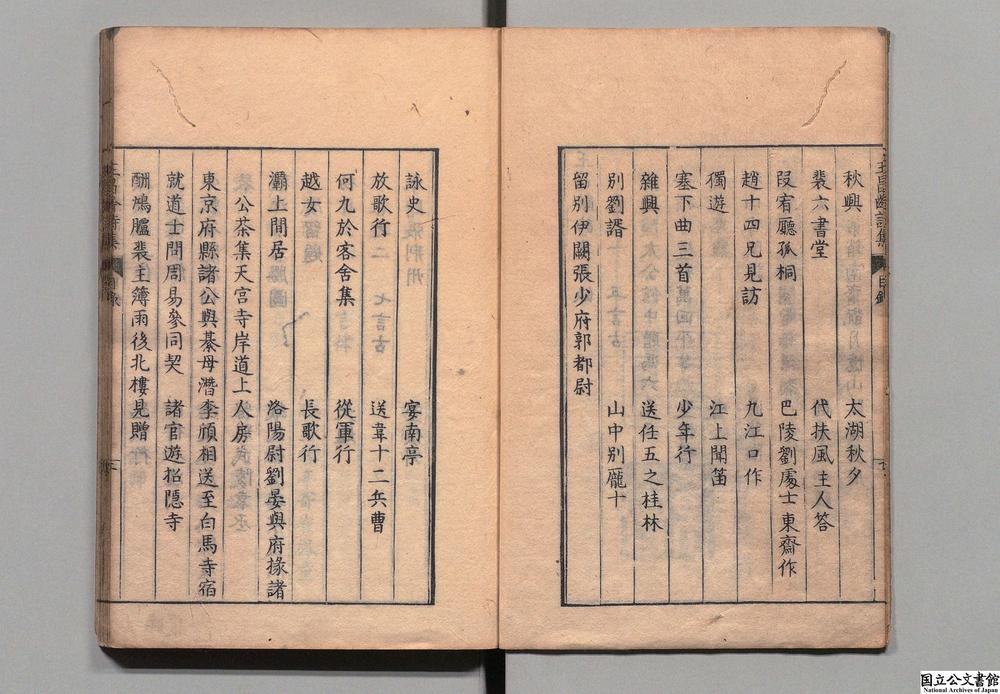 王昌齡詩集
目錄
秋興　太湖秋夕
裴六書堂　代扶風主人答
叚宥廳孤桐　巴陵劉處士東齋作
趙十四兄見訪　九江口作
獨遊　江上聞笛
塞下曲三首　少年行
雜興　送任五之桂林
別劉諝　山中別龐十
留別伊闕張少府郭都尉
詠史　宴南亭
放歌行　送韋十二兵曹
何九於客舍集　從軍行
越女　長歌行
灞上閒居　洛陽尉劉晏與府掾諸
公茶集天宮寺岸道上人房
東京府縣諸公與綦母潛李頎相送至白馬寺宿
就道士問周易參同契　諸官遊招隱寺
酬鴻臚裴主簿雨後北樓見贈
国立公文書館
National Archives of Japan